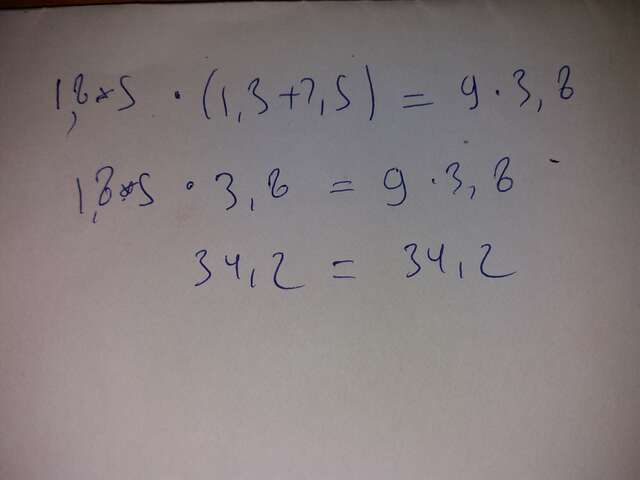 1,8*5 · (1,3+2,5) = 9·3,8
1,8*5 · 3,8 = 9·3,8
34,2 = 34,2